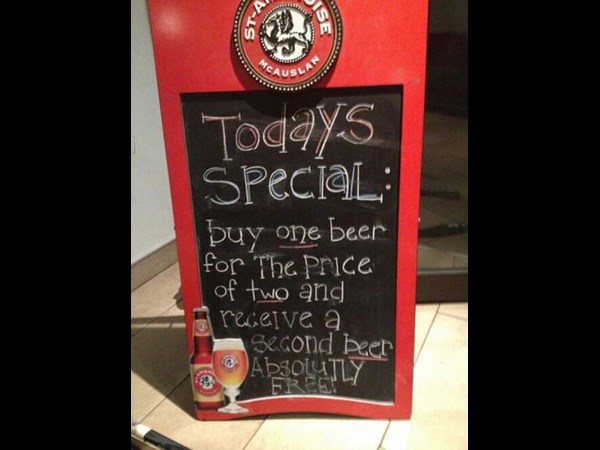 ST-AMBROISE
McAUSLAN
Todays
SPECIAL:
buy one beer
for The Price
of two and
receive a
second beer
ABSOLUTLY
FREE!